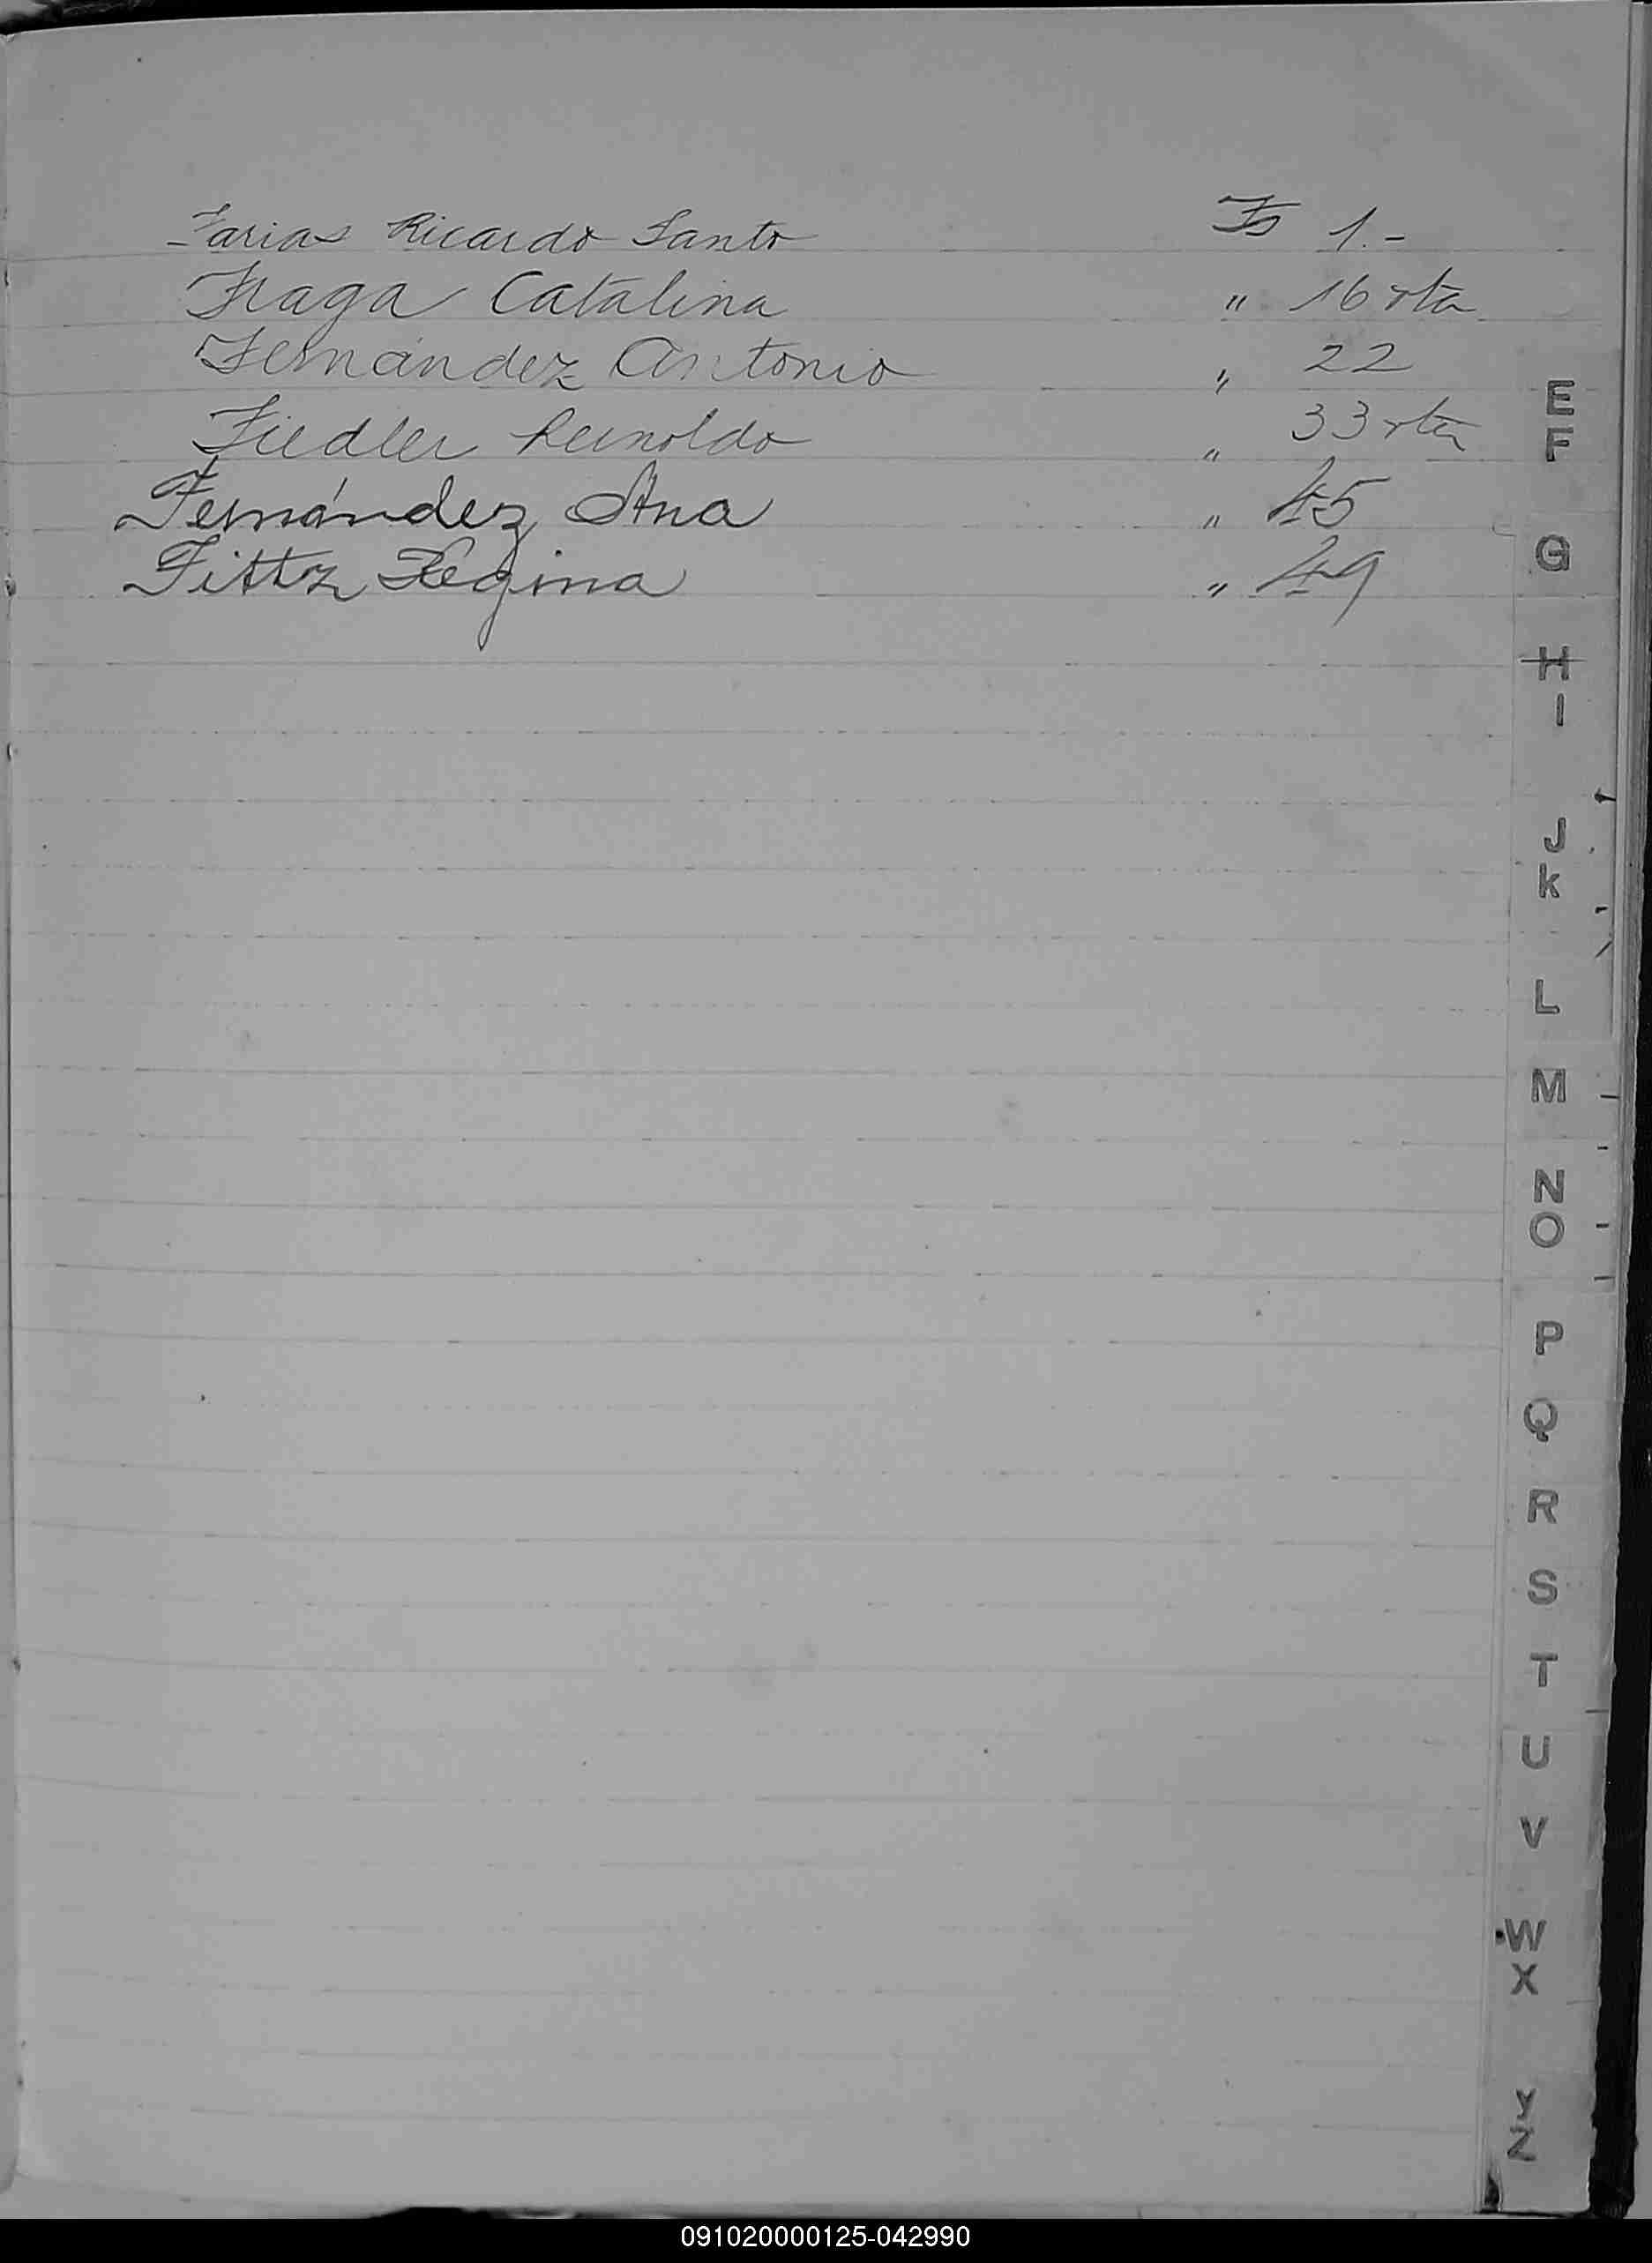 Farias Ricardo Santo Fs 1.-
Fraga Catalina " 16 vta
Fernández Antonio " 22
Fiedler Reinoldo " 33 vta
Fernández Ana " 45
Fittz Regina " 49
E
F
G
H
I
J
K
L
M
N
O
P
Q
R
S
T
U
V
W
X
Y
Z
091020000125-042990